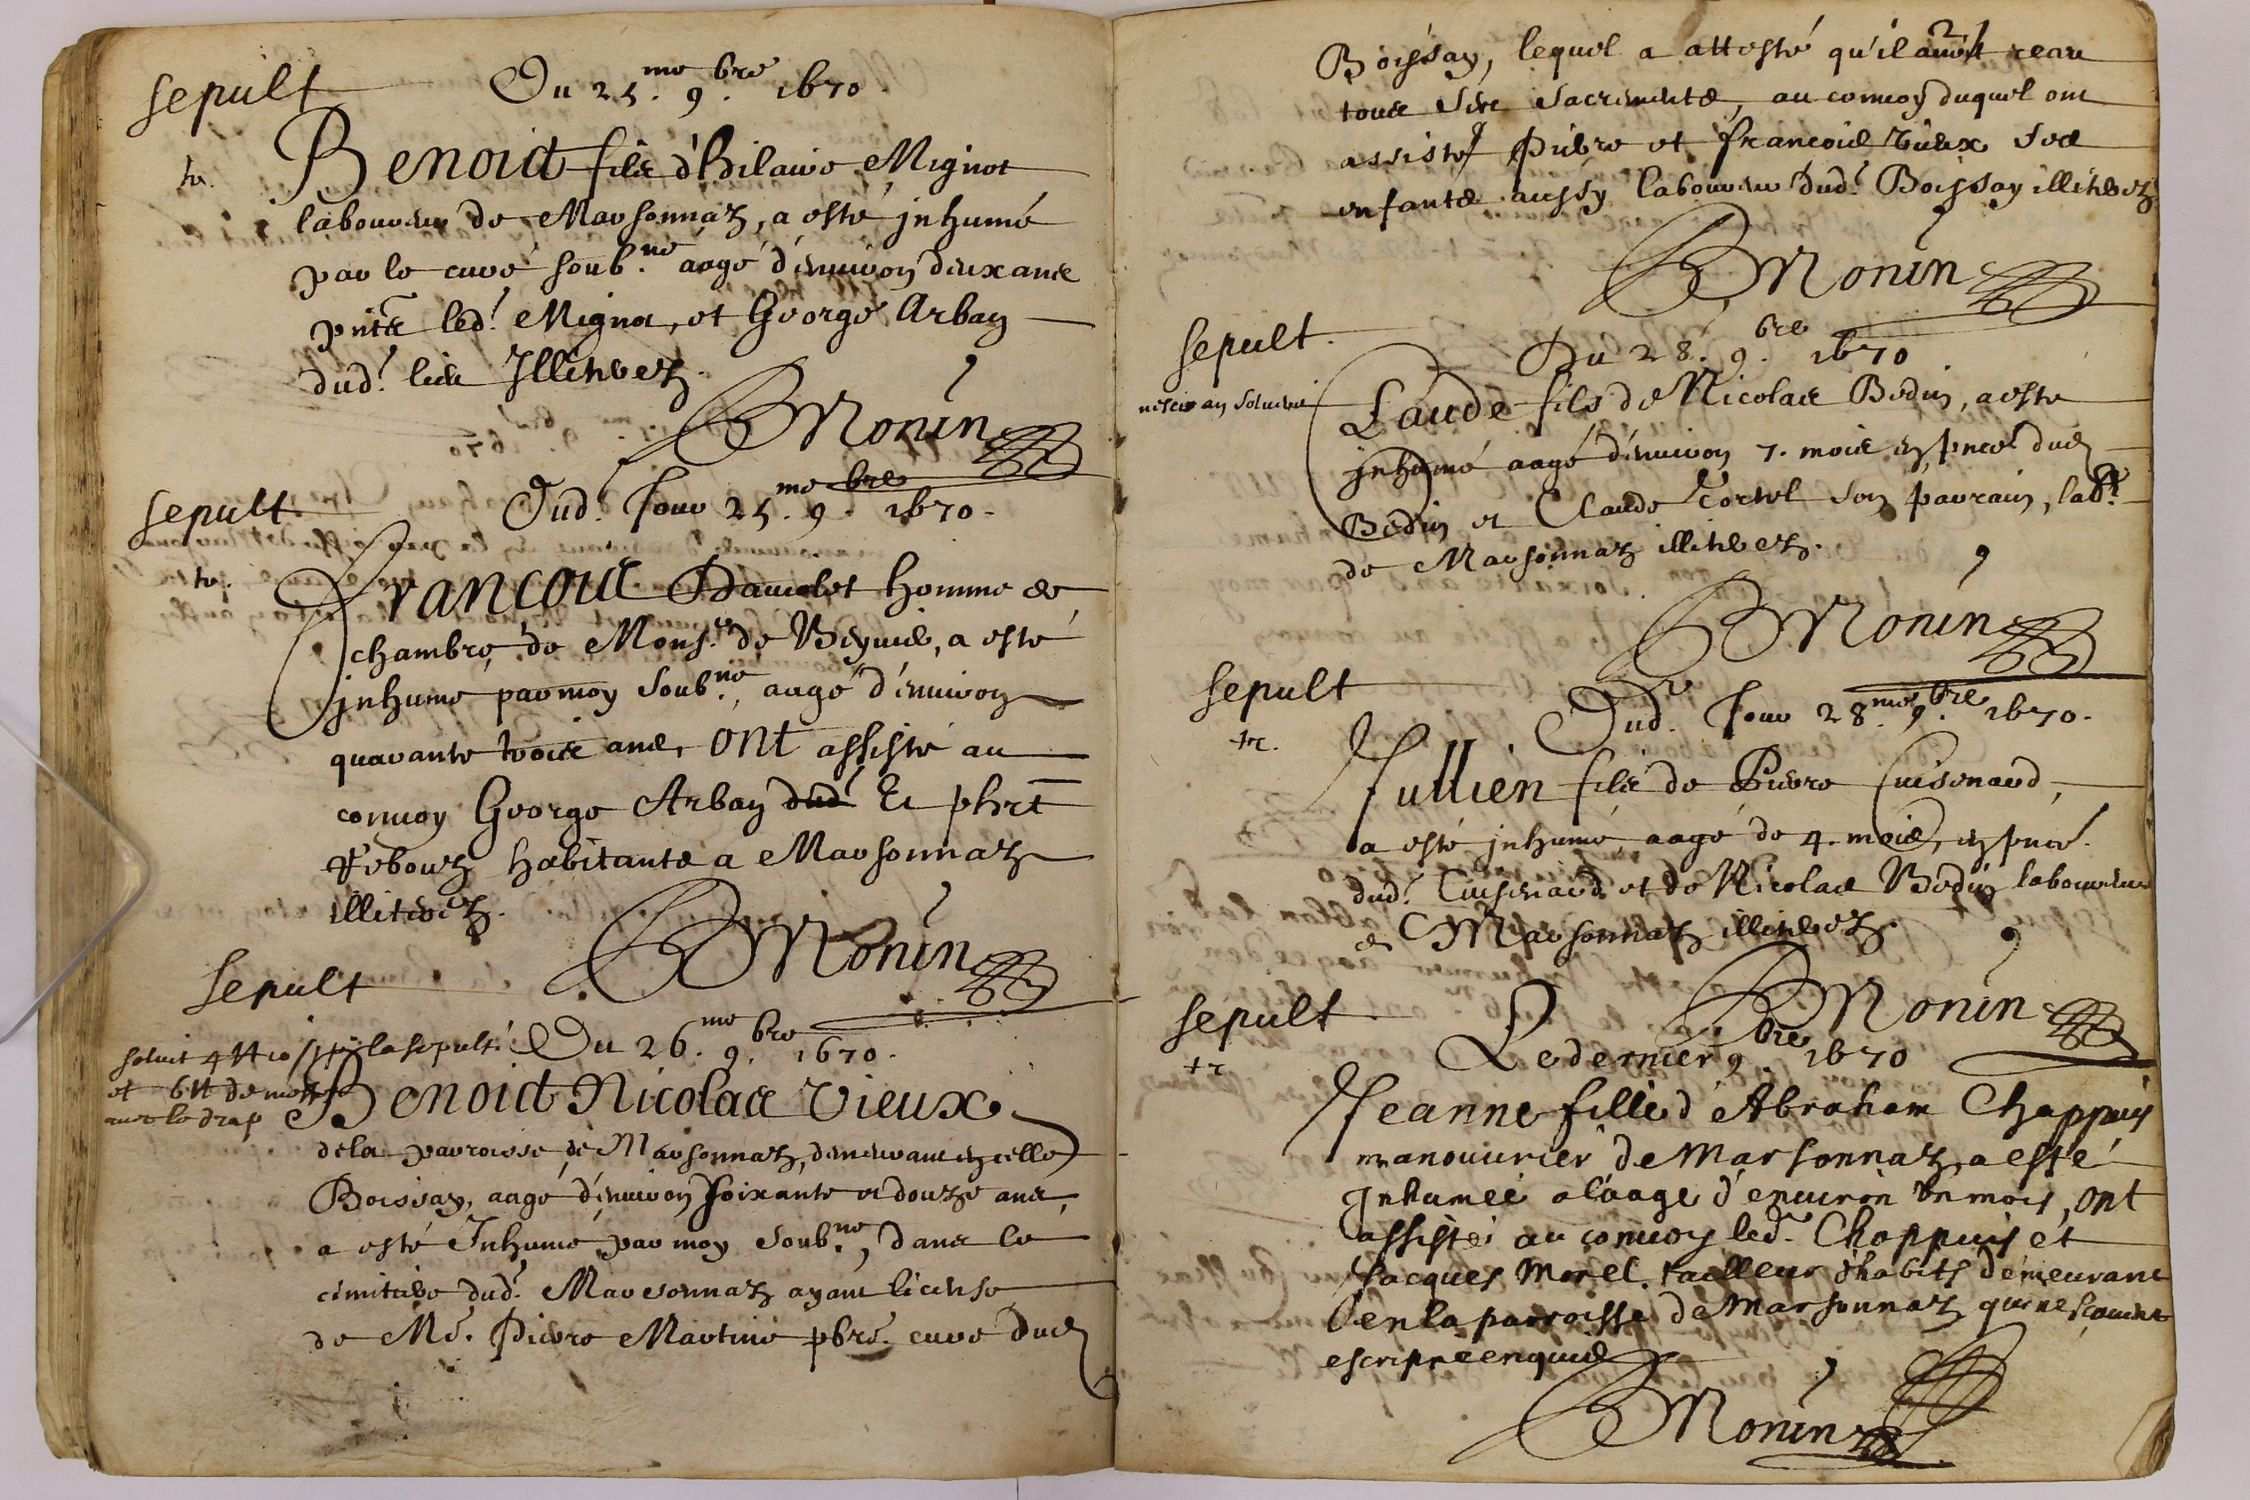 sepult
Du 25.me 9.bre 1670.
tr.
Benoict fils d'Hilaire Mignot
laboureur de Marsonnaz, a esté jnhumé
par le curé soub.né aagé d'environ deux ans
pnts led.t Mignot, et George Arban
dud.t lieu Illiterez.
BMonin
sepult
Dud.t Jour 25.me 9.bre 1670.
tr.
Francois Daniolet homme de
chambre de Mons.r de Beyvie, a esté
jnhumé par moy soub.né, aagé d'environ
quarante trois ans, ont assisté au
convoy George Arban dud.t Et phrt
Rebouz habitants a Marsonnaz
illiterez.
BMonin
sepult
solvit 4 tt 10 s pr la sepult.
et 6 tt de
avec le drap
Du 26.me 9.bre 1670.
Benoict Nicolas Vieux
de la parroisse de Marsonnaz, demeurant en celle
Boissay, aagé d'environ soixante et douze ans,
a esté Inhumé par moy soub.né, dans le
cimitiere dud.t Marsonnaz ayant license
de Me. Pierre Martine pbre. curé dud
21
Boissay, lequel a attesté qu'il avoit receu
tous ses sacrements, au convoy duquel ont
assisté Pierre et francois vieux ses
enfants aussy laboureurs dud.t Boissay illiterez
BMonin
sepult.
Du 28. 9.bre 1670
nescio an solverit
Claude fils de Nicolas Bedin, a esté
jnhumé aagé d'environ 7. mois en pnce dud
Bedin et Claude Tortel son parrain, lab.rs
de Marsonnaz illiterez.
BMonin
sepult
Dud.t Jour 28.me 9.bre 1670.
tr.
Jullien fils de Pierre Cuisenard,
a esté jnhumé, aagé de 4. mois, en pnce.
dud.t Cuisenard et de Nicolas Bedin laboureurs
de Marsonnaz illiterez.
BMonin
sepult
Le dernier 9.bre 1670
tr
Jeanne fille d'Abraham Chappuis
manouvrier de Marsonnaz, a esté
Inhumée a l'aage d'environ un mois, ont
assistéi au convoy led. Chappuis et
Jacques Morel tailleur d'habits demeurant
en la parroisse de Marsonnaz qui ne scavent
escripre enquis
BMonin